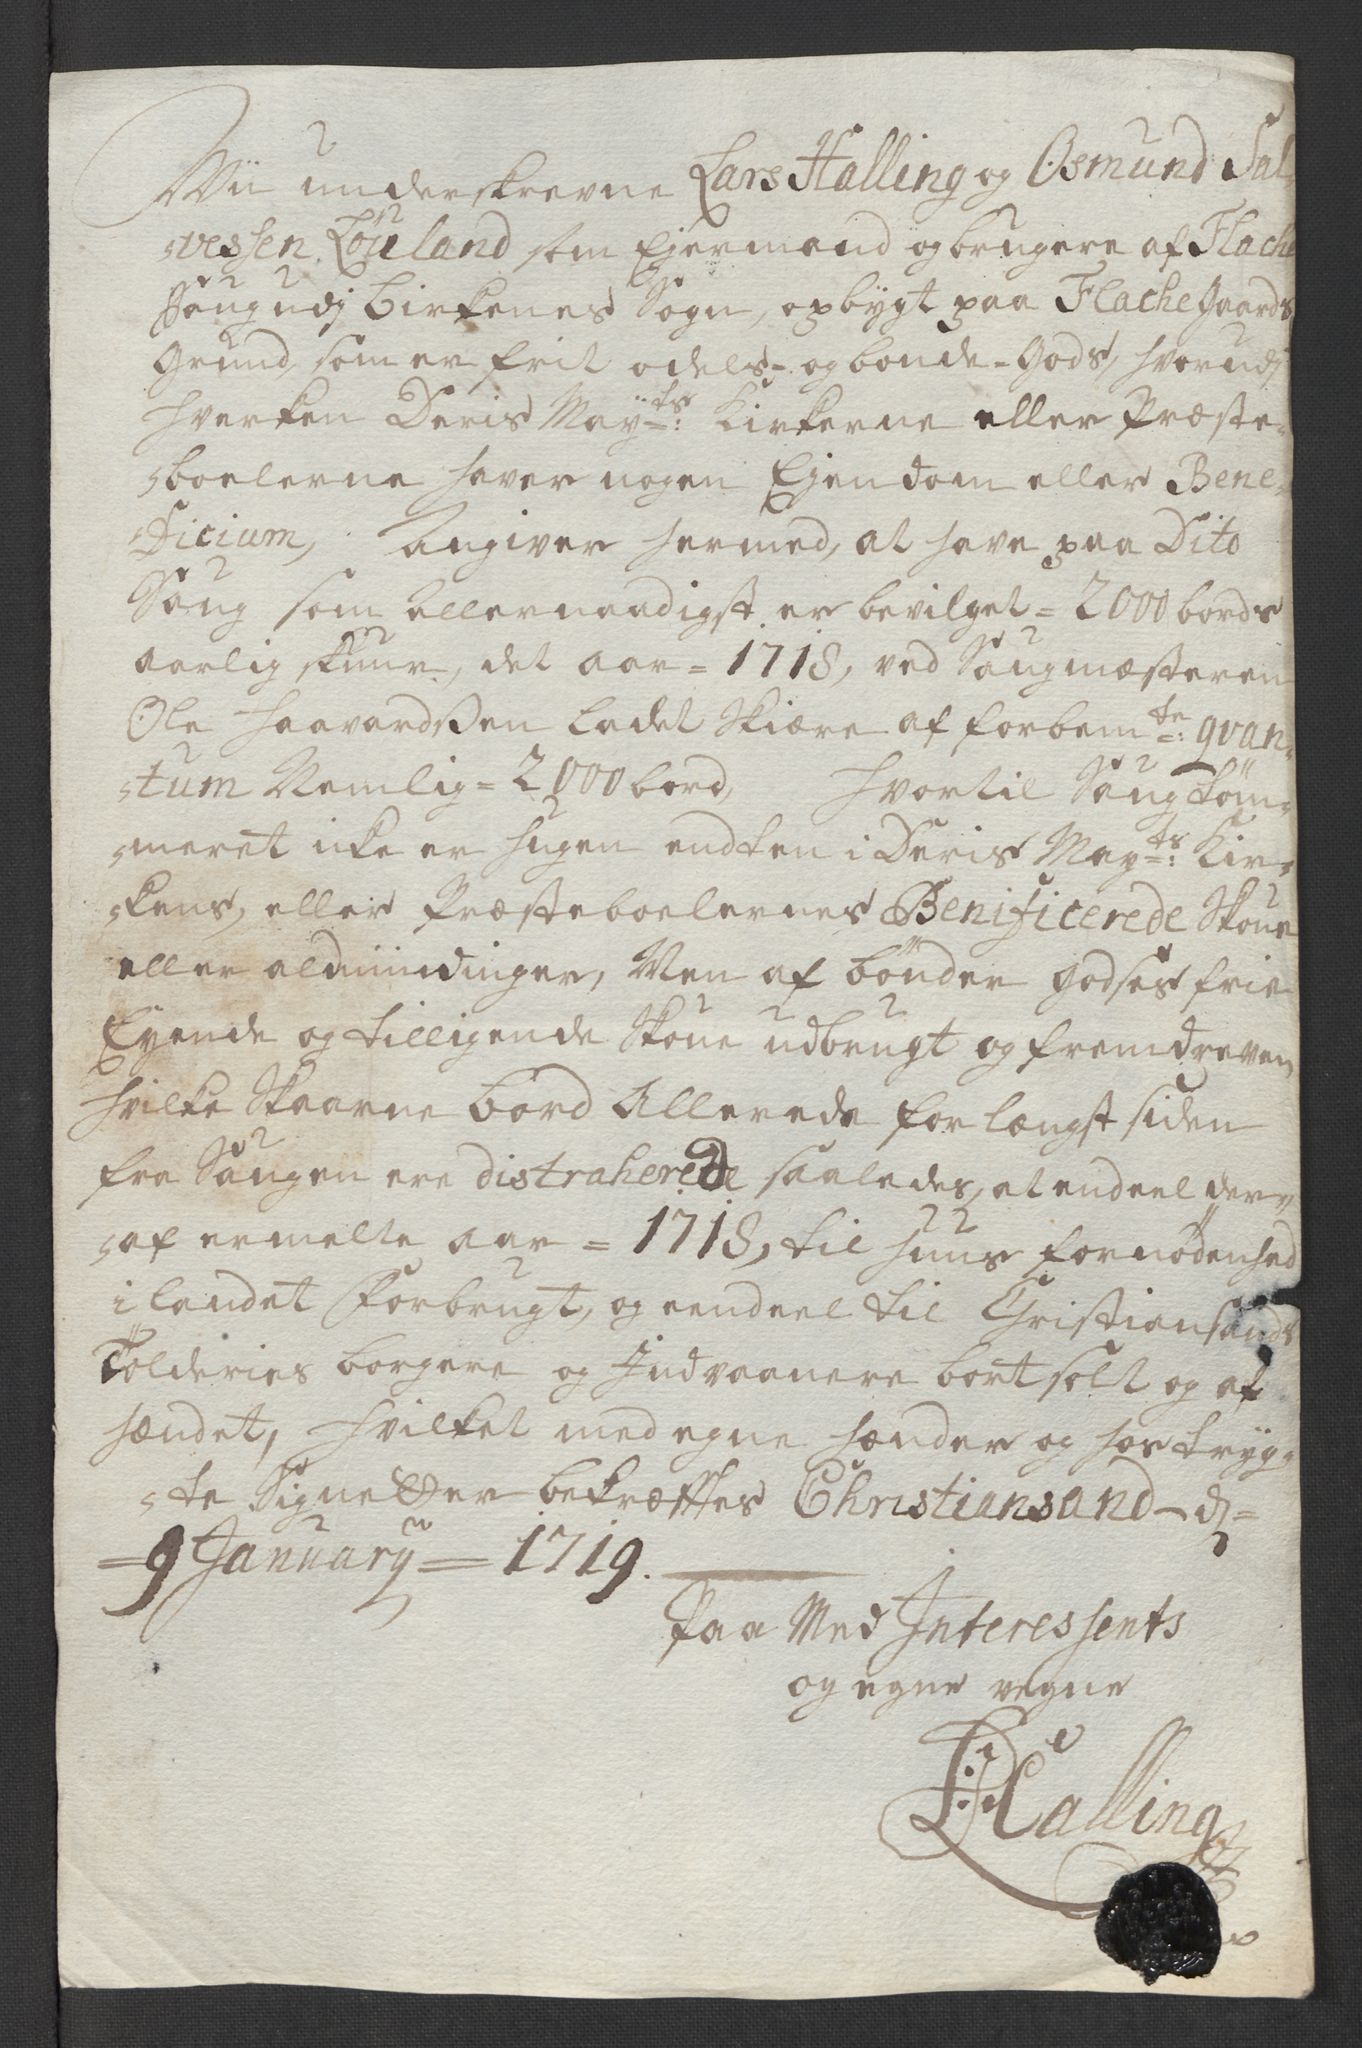 Wii underskrevne Lars Halling og Osmund Sal-
-vessen Löuland som Ejermænd og brugere af Flache
Saug udj Birkenes Sogn, opbygt paa Flache Gaards
Grund, som er frit odels- og bonde-Gods, hvorudj
hverken Deris Mayts: Kirkerne eller Præste-
-boelerne haver nogen Ejendom eller Bene-
-ficium, Angiver hermed, at have paa Dito
Saug som Allernaadigst er bevilget = 2000 bords
aarlig skuur, det aar = 1718, ved Saugmæsteren
Ole Haavardssen ladet Skiære af forbemte: qvan-
-tum Nemlig = 2000 bord, hvortil Saugtöm-
-meret icke er hugen endten i Deris Mayts: Kir-
-kens, eller Præsteboelernes Benificerede Skoue
eller almindinger, Men af bönder Godses frie
Eyende og tilligende Skoue udbrugt og fremdreven
hvilke Skaarne bord Allerede for længst siden
fra Saugen ere distraherede saaledes, at endeel der-
-af ermelte aar = 1718, til huus fornödenhed
i landet Forbrugt, og eendeel til Christiansands
Tolderies borgere og Indvaanere bortsolt og af
hændet, Hvilket med egne hænder og hostryg-
-te Signetter bekræfftes Christiansand dj =
= 9 January = 1719.
Paa Med Interessents
og egne vegne
L Halling